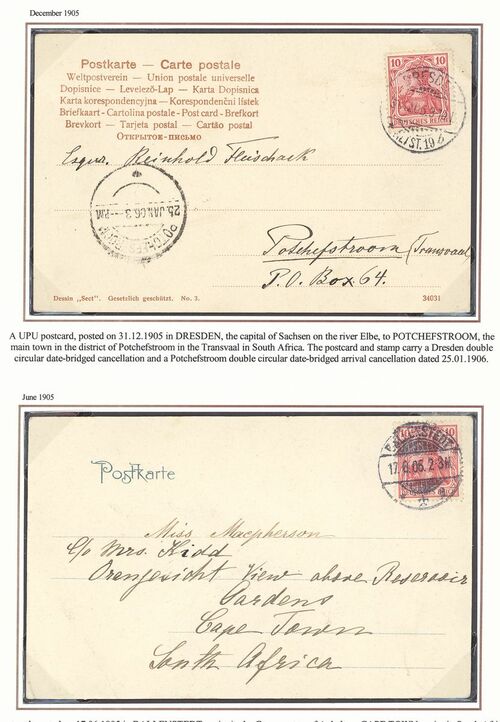 December 1905
Postkarte — Carte postale
Weltpostverein — Union postale universelle
Dopisnice — Levelező-Lap — Karta Dopisnica
Karta korespondencyjna — Korespondenční lístek
Briefkaart - Cartolina postale - Post card - Brefkort
Brevkort — Tarjeta postal — Cartão postal
ОТКРЫТОЕ-ПИСЬМО
10 10
Esqur. Reinhold Fleischack
25 JAN 06 3 - PM
Potchefstroom (Transvaal)
P.O. Box 64.
Dessin „Sect". Gesetzlich geschützt. No. 3.
34031
A UPU postcard, posted on 31.12.1905 in DRESDEN, the capital of Sachsen on the river Elbe, to POTCHEFSTROOM, the
main town in the district of Potchefstroom in the Transvaal in South Africa. The postcard and stamp carry a Dresden double
circular date-bridged cancellation and a Potchefstroom double circular date-bridged arrival cancellation dated 25.01.1906.
June 1905
10
BALLENSTEDT
17.6.05.2-3N
Postkarte
Miss Macpherson
c/o Mrs. Kidd
Orangezicht View above Reservoir
Gardens
Cape Town
South Africa